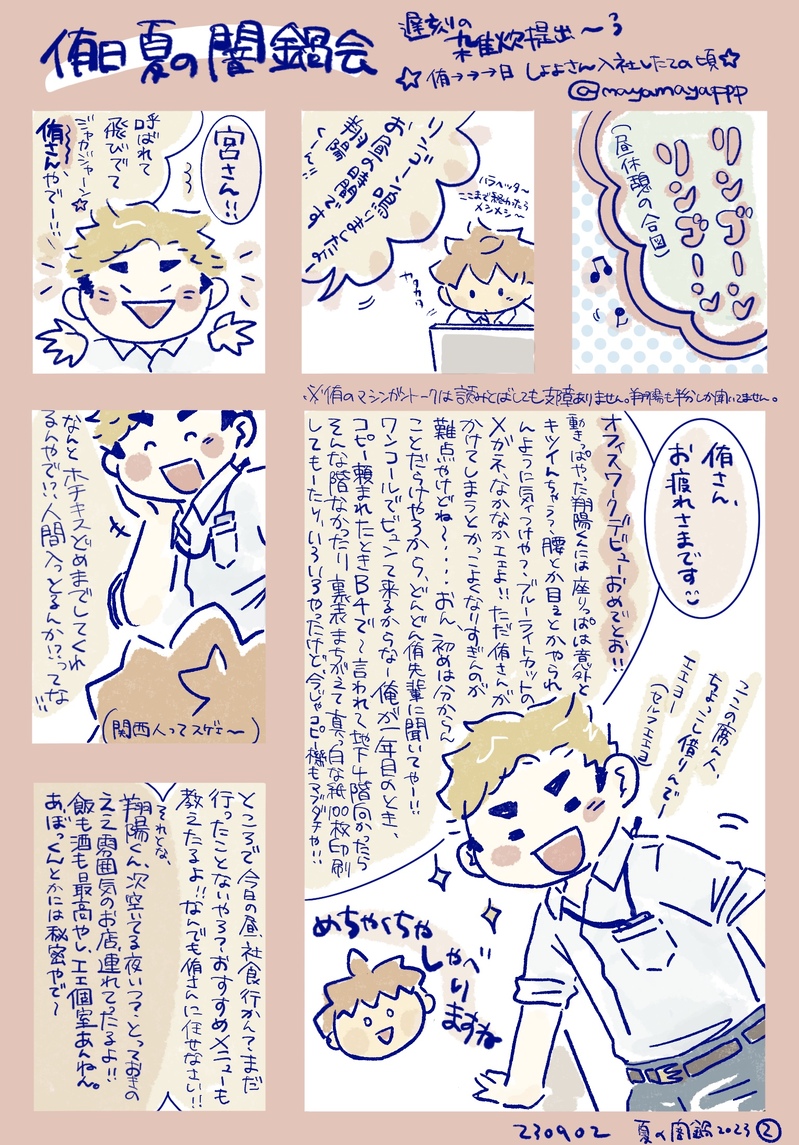 侑日 夏の闇鍋会
遅刻の
雑炊提出〜3
☆侑→→→日 しょよさん入社したての頃☆
@mayamayappp
リンゴーン
リンゴーン
(昼休憩の合図)
リンゴーン鳴りましたら
お昼の時間です
翔陽くーん!!
パラペッタ〜
ここまで終わったら
メシメシ〜
カタカタ
宮さん!!
呼ばれて
飛びでて
ジャガジャーン☆
侑さんやでー!!
※侑のマシンガントークは読みとばしても支障ありません。翔陽も半分しか聞いてません。
侑さん、
お疲れさまです
オフィスワークデビューおめでとお!!
動きっぱやった翔陽くんには座りっぱは意外と
キツイんちゃう?腰とか目ぇとかやられ
んように気ぃつけや?ブルーライトカットの
メガネ、なかなかエエよ!!ただ侑さんが
かけてしまうとかっこよくなりすぎんのが
難点やけどね〜・・・・おん、初めは分からん
ことだらけやろから、どんどん侑先輩に聞いてやー!!
ワンコールでビュンて来るからなー俺が一年目のとき、
コピー頼まれたときB4で〜言われて地下4階向かったら
そんな階なかったり裏表まちがえて真っ白な紙100枚印刷
してもーたり、いろいろやったけど、今じゃコピー機もマブダチや!!
ここの席の人、
ちょっこし借りんで〜
エエヨー
(セルフエエヨ)
めちゃくちゃ
しゃべ
りますね
なんとホチキスどめまでしてくれ
るんやで!?人間入っとるんか!?ってな!!
(関西人ってスゲェ〜)
ところで今日の昼、社食行かん?まだ
行ったことないやろ?おすすめメニューも
教えたるよ!!なんでも侑さんに任せなさい!!
それとな、
翔陽くん、次空いてる夜いつ?とっておきの
ええ雰囲気のお店、連れてったるよ!!
飯も酒も最高やし、エエ個室あんねん。
あぼっくんとかには秘密やで〜
230902 夏の闇鍋2023 ②